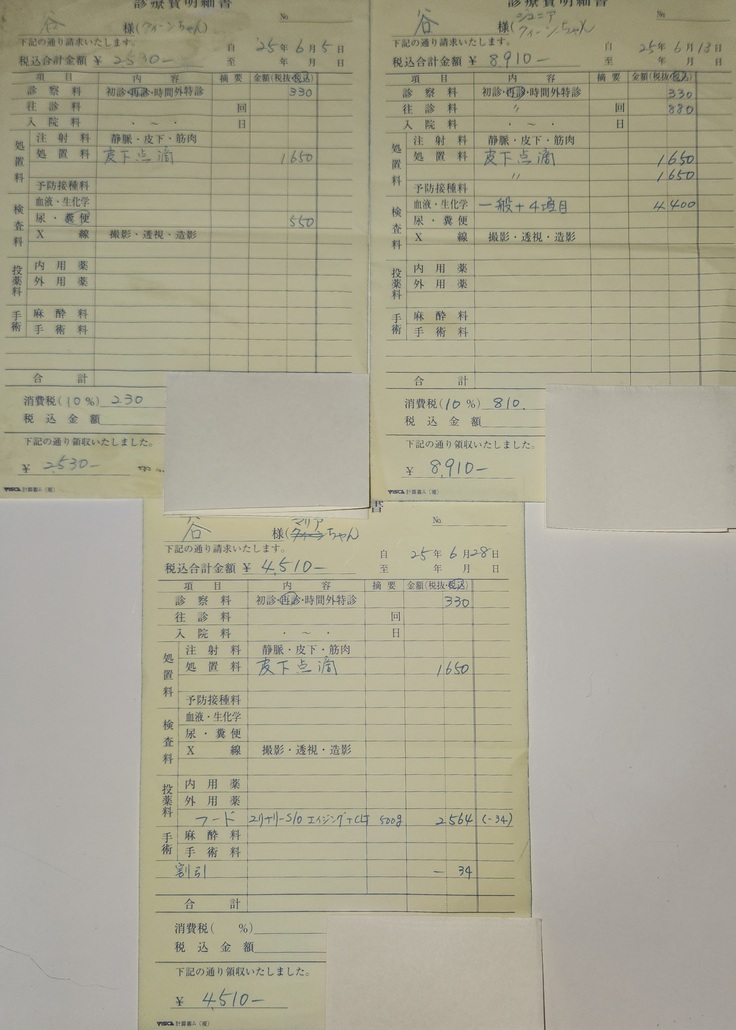 診療費明細書
No
谷 様(クィーンちゃん)
下記の通り請求いたします。
自 '25年 6月 5日
税込合計金額 ¥ 2530-
至 年 月 日
項 目 内 容 摘 要 金額(税抜・税込)
診 察 料 初診・再診・時間外特診 330
往 診 料 回
入 院 料 ・ ~ ・ 日
処置料
注 射 料 静脈・皮下・筋肉
処 置 料 皮下点滴 1650
予防接種料
検査料
血液・生化学
尿・糞便 550
X 線 撮影・透視・造影
投薬料
内 用 薬
外 用 薬
手術
麻 酔 料
手 術 料
合 計
消費税(10%) 230
税 込 金 額
下記の通り領収いたしました。
¥ 2,530-
計算書A(複)
診療費明細書
No
谷 様(ジュニア クィーンちゃん
下記の通り請求いたします。
自 25年 6月 13日
税込合計金額 ¥ 8,910-
至 年 月 日
項 目 内 容 摘 要 金額(税抜・税込)
診 察 料 初診・再診・時間外特診 330
往 診 料 〃 回 880
入 院 料 ・ ~ ・ 日
処置料
注 射 料 静脈・皮下・筋肉
処 置 料 皮下点滴 1650
〃 1650
予防接種料
検査料
血液・生化学 一般+4項目 4,400
尿・糞便
X 線 撮影・透視・造影
投薬料
内 用 薬
外 用 薬
手術
麻 酔 料
手 術 料
合 計
消費税(10%) 810
税 込 金 額
下記の通り領収いたしました。
¥ 8,910-
計算書A(複)
書
No
谷 様(マリアちゃん
下記の通り請求いたします。
自 25年 6月 28日
税込合計金額 ¥ 4,510-
至 年 月 日
項 目 内 容 摘 要 金額(税抜・税込)
診 察 料 初診・再診・時間外特診 330
往 診 料 回
入 院 料 ・ ~ ・ 日
処置料
注 射 料 静脈・皮下・筋肉
処 置 料 皮下点滴 1650
予防接種料
検査料
血液・生化学
尿・糞便
X 線 撮影・透視・造影
投薬料
内 用 薬
外 用 薬
フード ユリナリーS/O エイジング7+CLT 500g 2564 (-34)
手術
麻 酔 料
手 術 料
割引 - 34
合 計
消費税( %)
税 込 金 額
下記の通り領収いたしました。
¥ 4,510-
計算書A(複)